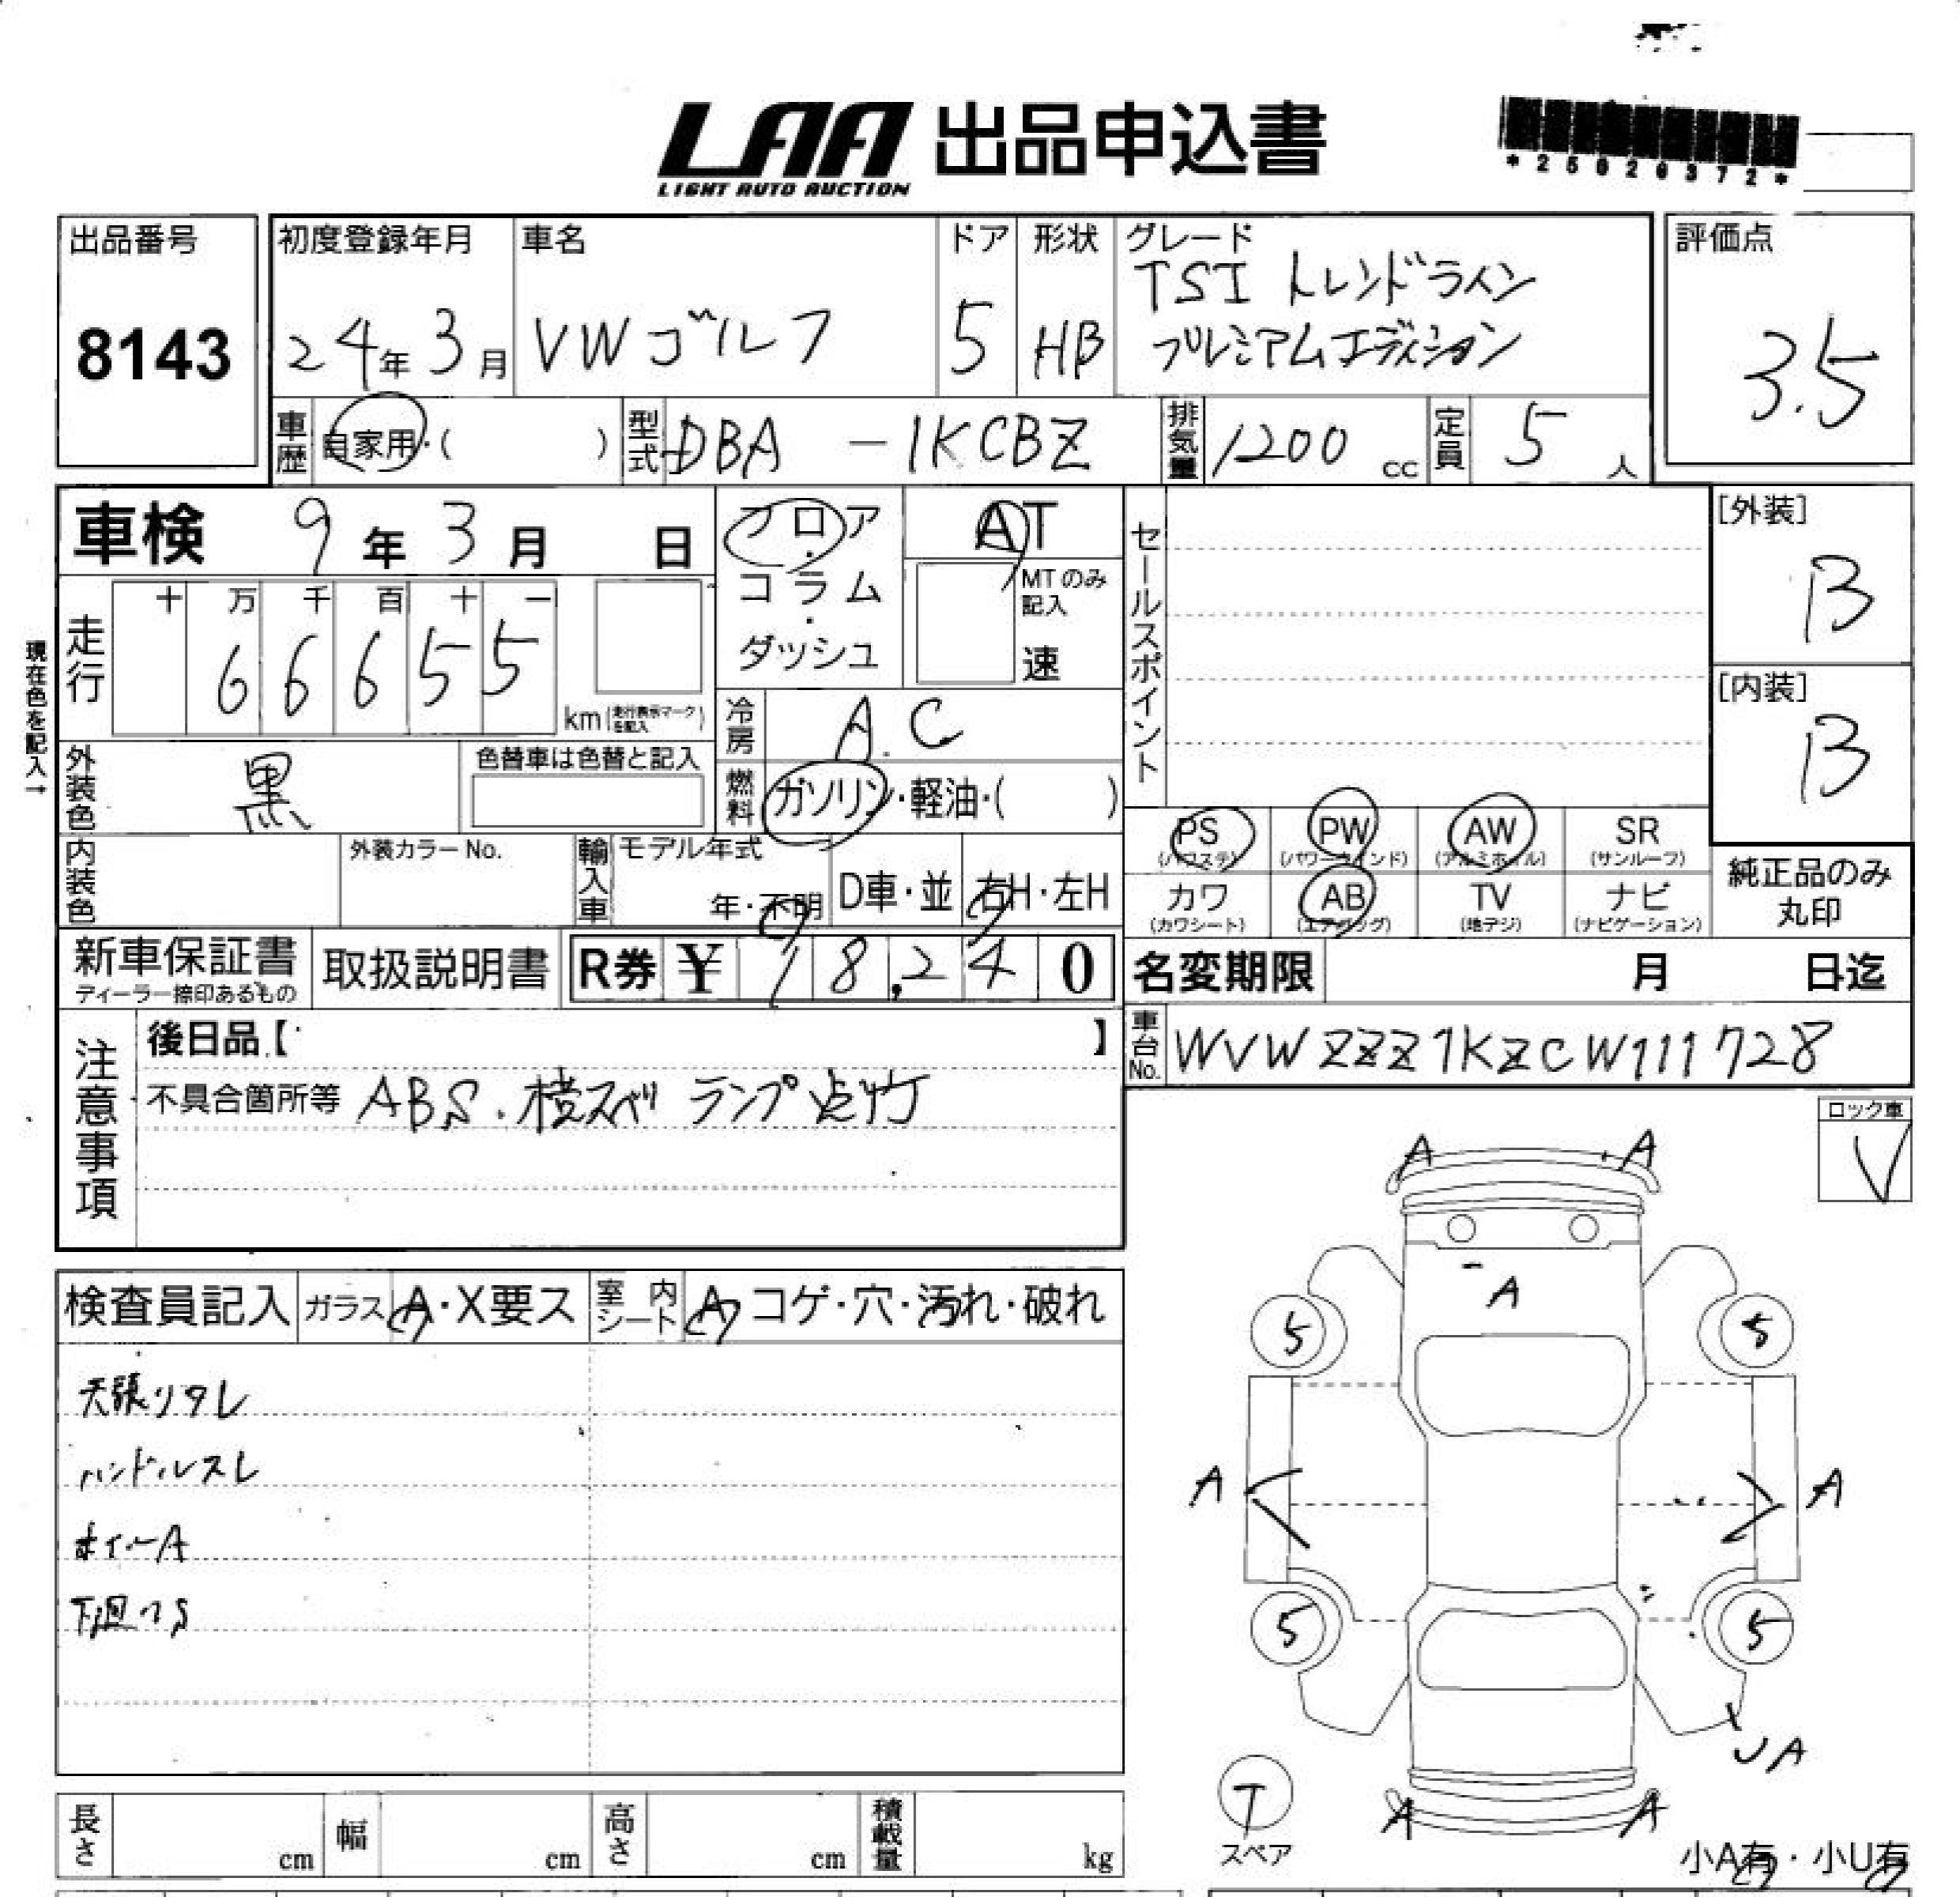 LAA 出品申込書
LIGHT AUTO AUCTION
*25020372*
出品番号
8143
初度登録年月
24年3月
車名
VW ゴルフ
ドア
5
形状
HB
グレード
TSI トレンドライン
プレミアムエディション
評価点
3.5
車歴
自家用・( )
型式
DBA - 1KCBZ
排気量
1200 cc
定員
5 人
車検 9年 3月 日
フロア・コラム・ダッシュ
AT
MTのみ記入
速
セールスポイント
[外装]
B
[内装]
B
現在色を記入→
走行
十 万 千 百 十 一
6 6 6 5 5
km(走行表示マークを記入)
冷房
A.C
外装色
黒
色替車は色替と記入
燃料
ガソリン・軽油・( )
PS (パワステ)
PW (パワーウインド)
AW (アルミホイル)
SR (サンルーフ)
カワ (カワシート)
AB (エアバッグ)
TV (地デジ)
ナビ (ナビゲーション)
純正品のみ丸印
内装色
外装カラーNo.
輸入車
モデル年式
年・不明
D車・並
右H・左H
新車保証書
ディーラー捺印あるもの
取扱説明書
R券 ¥ 18,240
名変期限 月 日迄
車台No.
WVWZZZ1KZCW111728
注意事項
後日品【 】
不具合箇所等 ABS.横スベリ ランプ点灯
ロック車
V
検査員記入
ガラス A・X要ス
室内シート A コゲ・穴・汚れ・破れ
天張りタレ
ハンドルスレ
ホイールA
下廻りS
A A
A
5 5
A A
5 5
UA
T
スペア
A A
小A有・小U有
長さ cm
幅 cm
高さ cm
積載量 kg